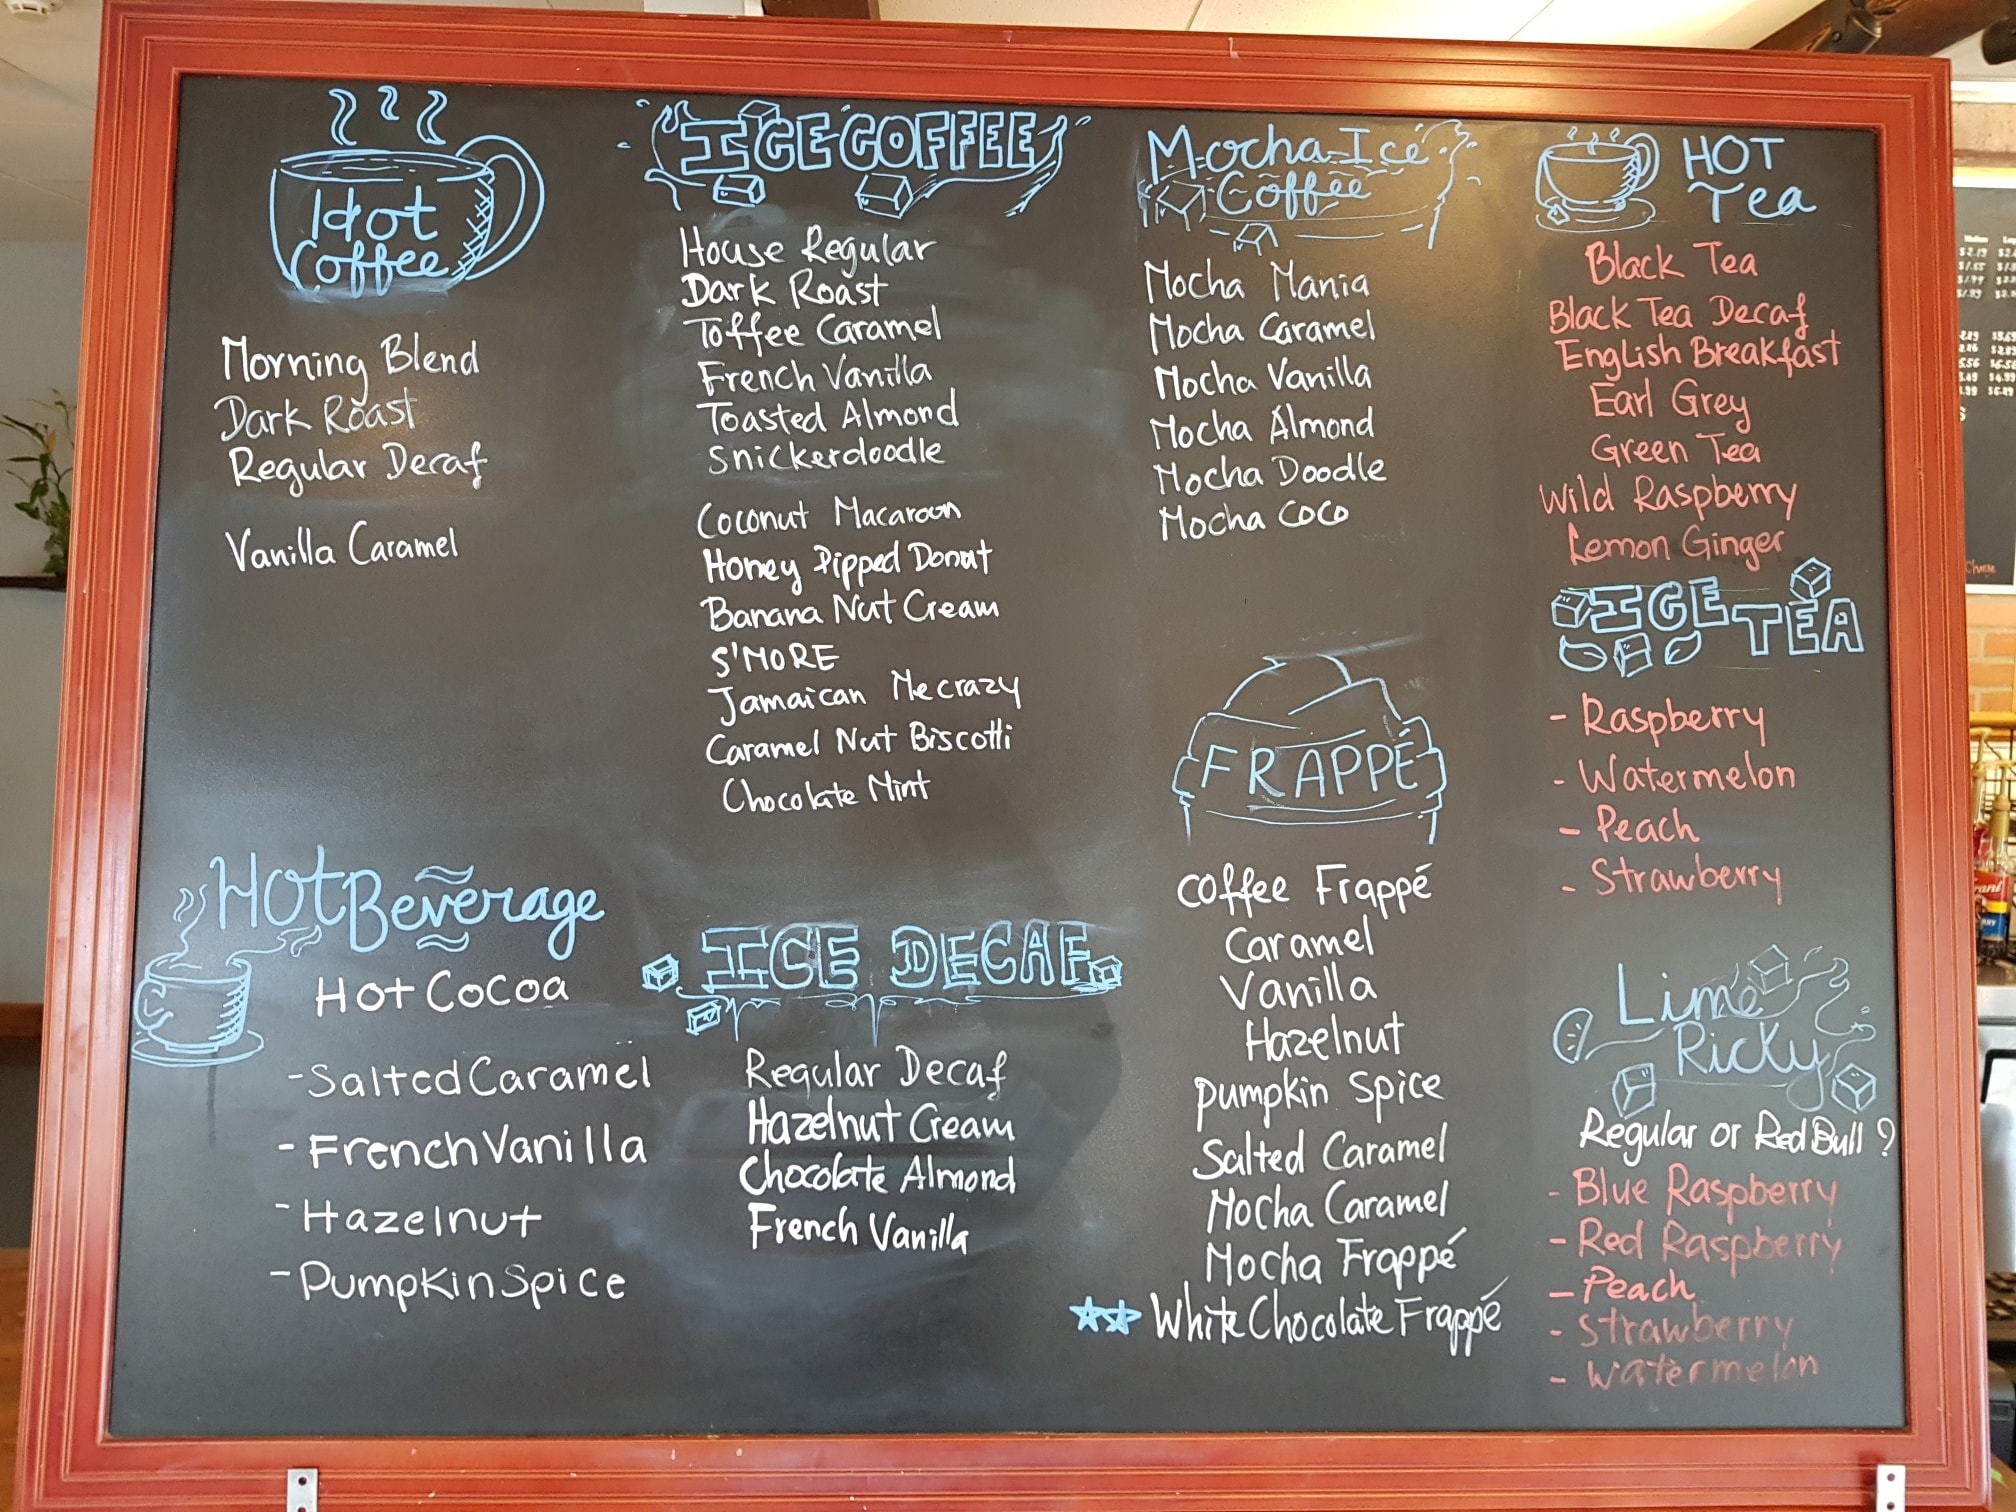 Hot
Coffee
Morning Blend
Dark Roast
Regular Decaf
Vanilla Caramel
Hot Beverage
Hot Cocoa
- Salted Caramel
- French Vanilla
- Hazelnut
- Pumpkin Spice
ICE COFFEE
House Regular
Dark Roast
Toffee Caramel
French Vanilla
Toasted Almond
Snickerdoodle
Coconut Macaroon
Honey Dipped Donut
Banana Nut Cream
S'MORE
Jamaican Mecrazy
Caramel Nut Biscotti
Chocolate Mint
ICE DECAF
Regular Decaf
Hazelnut Cream
Chocolate Almond
French Vanilla
Mocha Ice
Coffee
Mocha Mania
Mocha Caramel
Mocha Vanilla
Mocha Almond
Mocha Doodle
Mocha Coco
FRAPPÉ
Coffee Frappé
Caramel
Vanilla
Hazelnut
Pumpkin Spice
Salted Caramel
Mocha Caramel
Mocha Frappé
White Chocolate Frappé
HOT
Tea
Black Tea
Black Tea Decaf
English Breakfast
Earl Grey
Green Tea
Wild Raspberry
Lemon Ginger
ICE TEA
- Raspberry
- Watermelon
- Peach
- Strawberry
Lime
Ricky
Regular or Red Bull ?
- Blue Raspberry
- Red Raspberry
- Peach
- Strawberry
- Watermelon